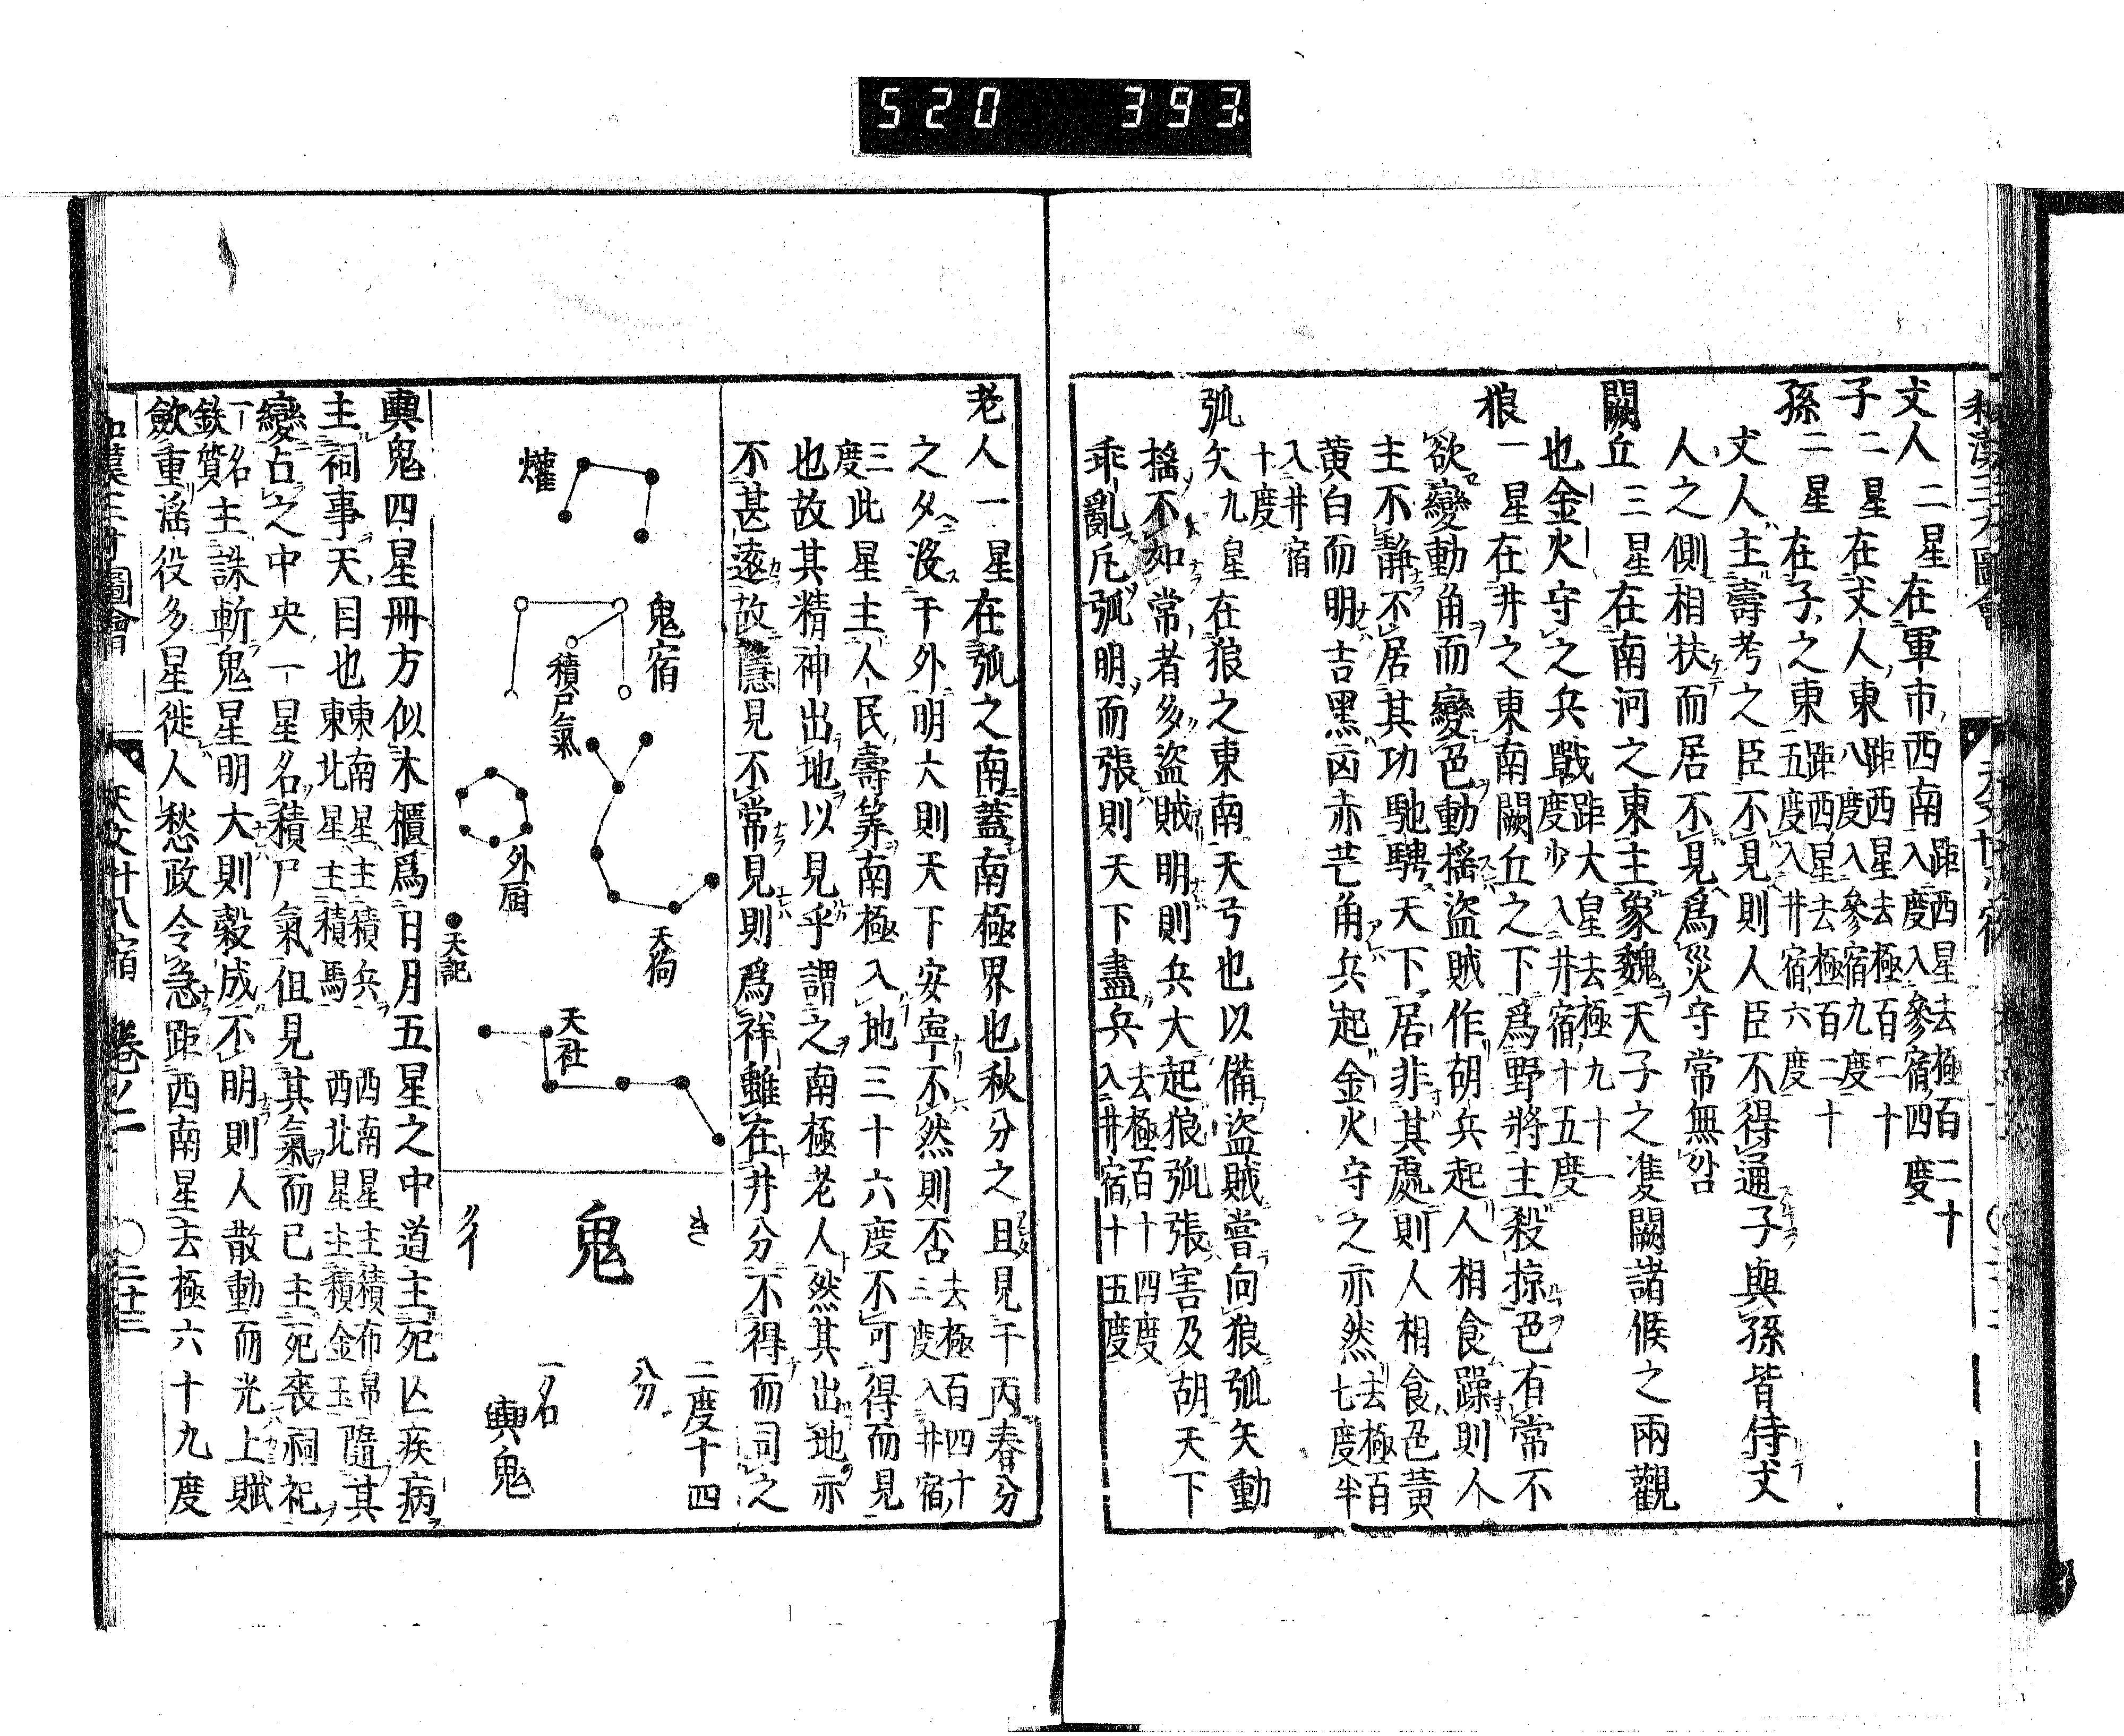 520 393
丈人二星在軍市西南距西星去極百二十
八度入參宿四度
子二星在丈人東距西星去極百二十
八度入參宿九度
孫二星在子之東距西星去極百二十
五度入井宿六度
丈人主壽考之臣不見則人臣不得通子與孫皆侍丈
人之側相扶而居不見爲災守常無咎
闕丘三星在南河之東主象魏天子之雙闕諸候之兩觀
也金火守之兵戰距大星去極九十一
度少入井宿十五度
狼一星在井之東南闕丘之下爲野將主殺掠色有常不
欲變動角而變色動搖盜賊作胡兵起人相食躁則人
主不靜不居其功馳騁天下居非其處則人相食色黃
黄白而明吉黑凶赤芒角兵起金火守之亦然去極百
七度半
入井宿
十度
弧矢九星在狼之東南天弓也以備盜賊嘗向狼弧矢動
搖不如常者多盜賊明則兵大起狼弧張害及胡天下
乖亂斥弧明而張則天下盡兵去極百十四度
入井宿十五度
老人一星在弧之南蓋南極界也秋分之旦見于丙春分
之夕没于外明大則天下安寧不然則否去極百四十
三度入井宿
三
度此星主人民壽筭南極入地三十六度不可得而見
也故其精神出地以見乎謂之南極老人然其出地亦
不甚遠故隱見不常見則爲祥雖在井分不得而司之
爟
鬼宿
積尸氣
外厨
天記
天狗
天社
き
鬼
二度十四
八分
一名
輿鬼
輿鬼四星冊方似木櫃爲日月五星之中道主死亾疾病
主祠事天目也東南星主積兵 西南星主積布帛
東北星主積馬 西北星主積金玉隨其
變占之中央一星名積尸氣但見其氣而已主死喪祠祀
一名
鈇鑕主誅斬鬼星明大則穀成不明則人散動而光上賦
歛重徭役多星徙人愁政令急距西南星去極六十九度
天文廿八宿 卷ノ二 二十三